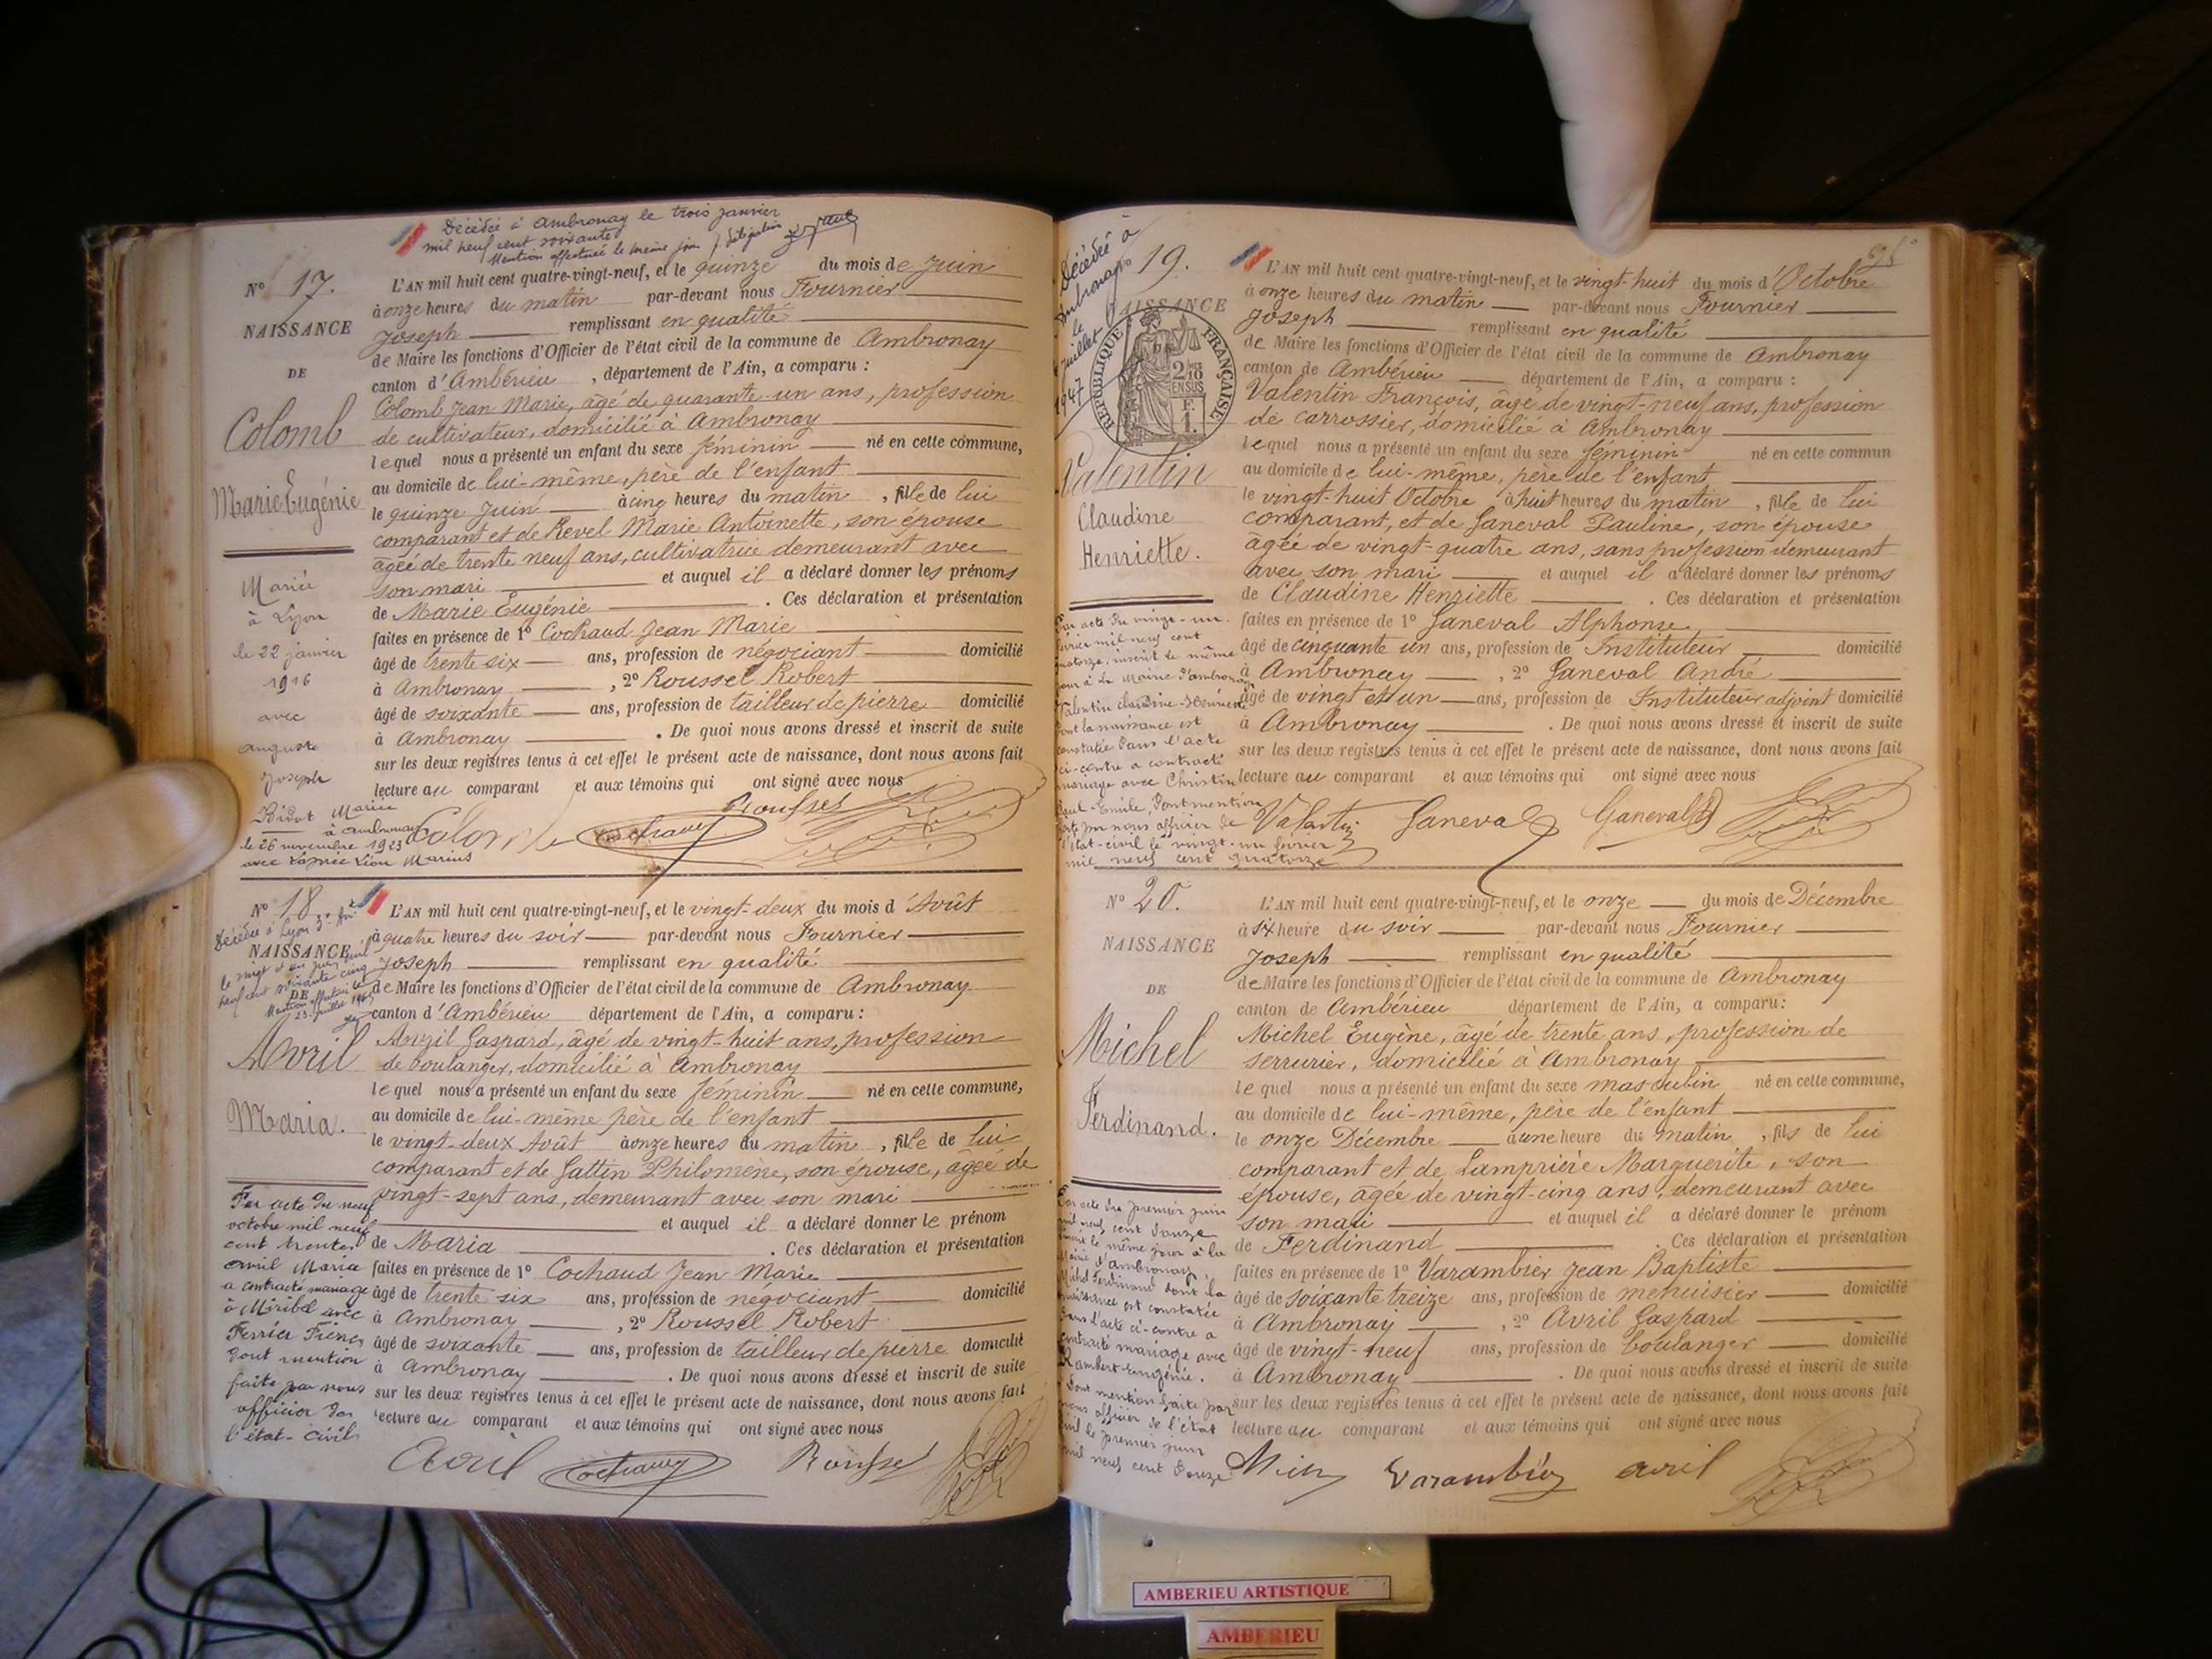 Décédée à Ambronay le trois janvier
mil neuf cent soixante
Mention effectuée le même jour
N° 17.
NAISSANCE
DE
Colomb
Marie Eugénie
Mariée
à Lyon
le 22 janvier
1916
avec
Auguste
Joseph
Bidot
Mariée
à Ambronay
le 26 novembre 1923
avec Léon Marius
L'AN mil huit cent quatre-vingt-neuf, et le quinze du mois de Juin
à onze heures du matin par-devant nous Fournier
Joseph remplissant en qualité
de Maire les fonctions d'Officier de l'état civil de la commune de Ambronay
canton d'Ambérieu, département de l'Ain, a comparu :
Colomb Jean Marie, âgé de quarante-un ans, profession
de cultivateur, domicilié à Ambronay
lequel nous a présenté un enfant du sexe féminin né en cette commune,
au domicile de lui-même, père de l'enfant
le quinze Juin à cinq heures du matin, fille de lui
comparant et de Revel Marie Antoinette, son épouse
âgée de trente neuf ans, cultivatrice demeurant avec
son mari et auquel il a déclaré donner les prénoms
de Marie Eugénie. Ces déclaration et présentation
faites en présence de 1° Cochaud Jean Marie
âgé de trente six ans, profession de négociant domicilié
à Ambronay, 2° Roussel Robert
âgé de soixante ans, profession de tailleur de pierre domicilié
à Ambronay. De quoi nous avons dressé et inscrit de suite
sur les deux registres tenus à cet effet le présent acte de naissance, dont nous avons fait
lecture au comparant et aux témoins qui ont signé avec nous
Colomb Cochaud Roussel
N° 18
Décédée à Lyon 3°
NAISSANCE
le vingt et un juin mil
neuf cent soixante cinq
DE
Mention effectuée le
23 juillet 1965
Avril
Maria.
Par acte du neuf
octobre mil neuf
cent trente,
Avril Maria
a contracté mariage
à Miribel avec
Ferrier
dont mention
faite par nous
officier de
l'état-civil
L'AN mil huit cent quatre-vingt-neuf, et le vingt-deux du mois d'Août
à quatre heures du soir par-devant nous Fournier
Joseph remplissant en qualité
de Maire les fonctions d'Officier de l'état civil de la commune de Ambronay
canton d'Ambérieu département de l'Ain, a comparu :
Avril Gaspard, âgé de vingt-huit ans, profession
de boulanger, domicilié à Ambronay
lequel nous a présenté un enfant du sexe féminin né en cette commune,
au domicile de lui-même père de l'enfant
le vingt-deux Août à onze heures du matin, fille de lui
comparant et de Gattin Philomène, son épouse, âgée de
vingt-sept ans, demeurant avec son mari
et auquel il a déclaré donner le prénom
de Maria. Ces déclaration et présentation
faites en présence de 1° Cochaud Jean Marie
âgé de trente six ans, profession de négociant domicilié
à Ambronay, 2° Roussel Robert
âgé de soixante ans, profession de tailleur de pierre domicilié
à Ambronay. De quoi nous avons dressé et inscrit de suite
sur les deux registres tenus à cet effet le présent acte de naissance, dont nous avons fait
lecture au comparant et aux témoins qui ont signé avec nous
Avril Cochaud Roussel
Décédée à
Ambronay
le
juillet
1947
N° 19.
NAISSANCE
RÉPUBLIQUE FRANÇAISE
2/10 EN SUS
Valentin
Claudine
Henriette.
Par acte du vingt-un
février mil neuf cent
quatorze, inscrit le même
jour à la Mairie d'Ambronay
Valentin Claudine-Henriette
dont la naissance est
constatée dans l'acte
ci-contre a contracté
mariage avec Christin
Paul-Emile, dont mention
faite par nous officier de
l'état-civil le vingt-un février
mil neuf cent quatorze
L'AN mil huit cent quatre-vingt-neuf, et le vingt-huit du mois d'Octobre
à onze heures du matin par-devant nous Fournier
Joseph remplissant en qualité
de Maire les fonctions d'Officier de l'état civil de la commune de Ambronay
canton de Ambérieu département de l'Ain, a comparu :
Valentin François, âgé de vingt-neuf ans, profession
de carrossier, domicilié à Ambronay
lequel nous a présenté un enfant du sexe féminin né en cette commun
au domicile de lui-même, père de l'enfant
le vingt-huit Octobre à huit heures du matin, fille de lui
comparant, et de Ganeval Pauline, son épouse
âgée de vingt-quatre ans, sans profession demeurant
avec son mari et auquel il a déclaré donner les prénoms
de Claudine Henriette. Ces déclaration et présentation
faites en présence de 1° Ganeval Alphonse
âgé de cinquante un ans, profession de Instituteur domicilié
à Ambronay, 2° Ganeval André
âgé de vingt et un ans, profession de Instituteur adjoint domicilié
à Ambronay. De quoi nous avons dressé et inscrit de suite
sur les deux registres tenus à cet effet le présent acte de naissance, dont nous avons fait
lecture au comparant et aux témoins qui ont signé avec nous
Valentin Ganeval Ganeval
N° 20.
NAISSANCE
DE
Michel
Ferdinand.
Par acte du premier juin
mil neuf cent douze
inscrit le même jour à la
Mairie d'Ambronay,
Michel Ferdinand dont la
naissance est constatée
dans l'acte ci-contre a
contracté mariage avec
Rambert Eugénie.
Dont mention faite par
nous officier de l'état
civil le premier juin
mil neuf cent douze
L'AN mil huit cent quatre-vingt-neuf, et le onze du mois de Décembre
à six heure du soir par-devant nous Fournier
Joseph remplissant en qualité
de Maire les fonctions d'Officier de l'état civil de la commune de Ambronay
canton de Ambérieu département de l'Ain, a comparu :
Michel Eugène, âgé de trente ans, profession de
serrurier, domicilié à Ambronay
lequel nous a présenté un enfant du sexe masculin né en cette commune,
au domicile de lui-même, père de l'enfant
le onze Décembre à une heure du matin, fils de lui
comparant et de Lamprière Marguerite, son
épouse, âgée de vingt-cinq ans, demeurant avec
son mari et auquel il a déclaré donner le prénom
de Ferdinand. Ces déclaration et présentation
faites en présence de 1° Varambier Jean Baptiste
âgé de soixante treize ans, profession de menuisier domicilié
à Ambronay, 2° Avril Gaspard
âgé de vingt-neuf ans, profession de boulanger domicilié
à Ambronay. De quoi nous avons dressé et inscrit de suite
sur les deux registres tenus à cet effet le présent acte de naissance, dont nous avons fait
lecture au comparant et aux témoins qui ont signé avec nous
Varambier Avril
AMBERIEU ARTISTIQUE
AMBERIEU